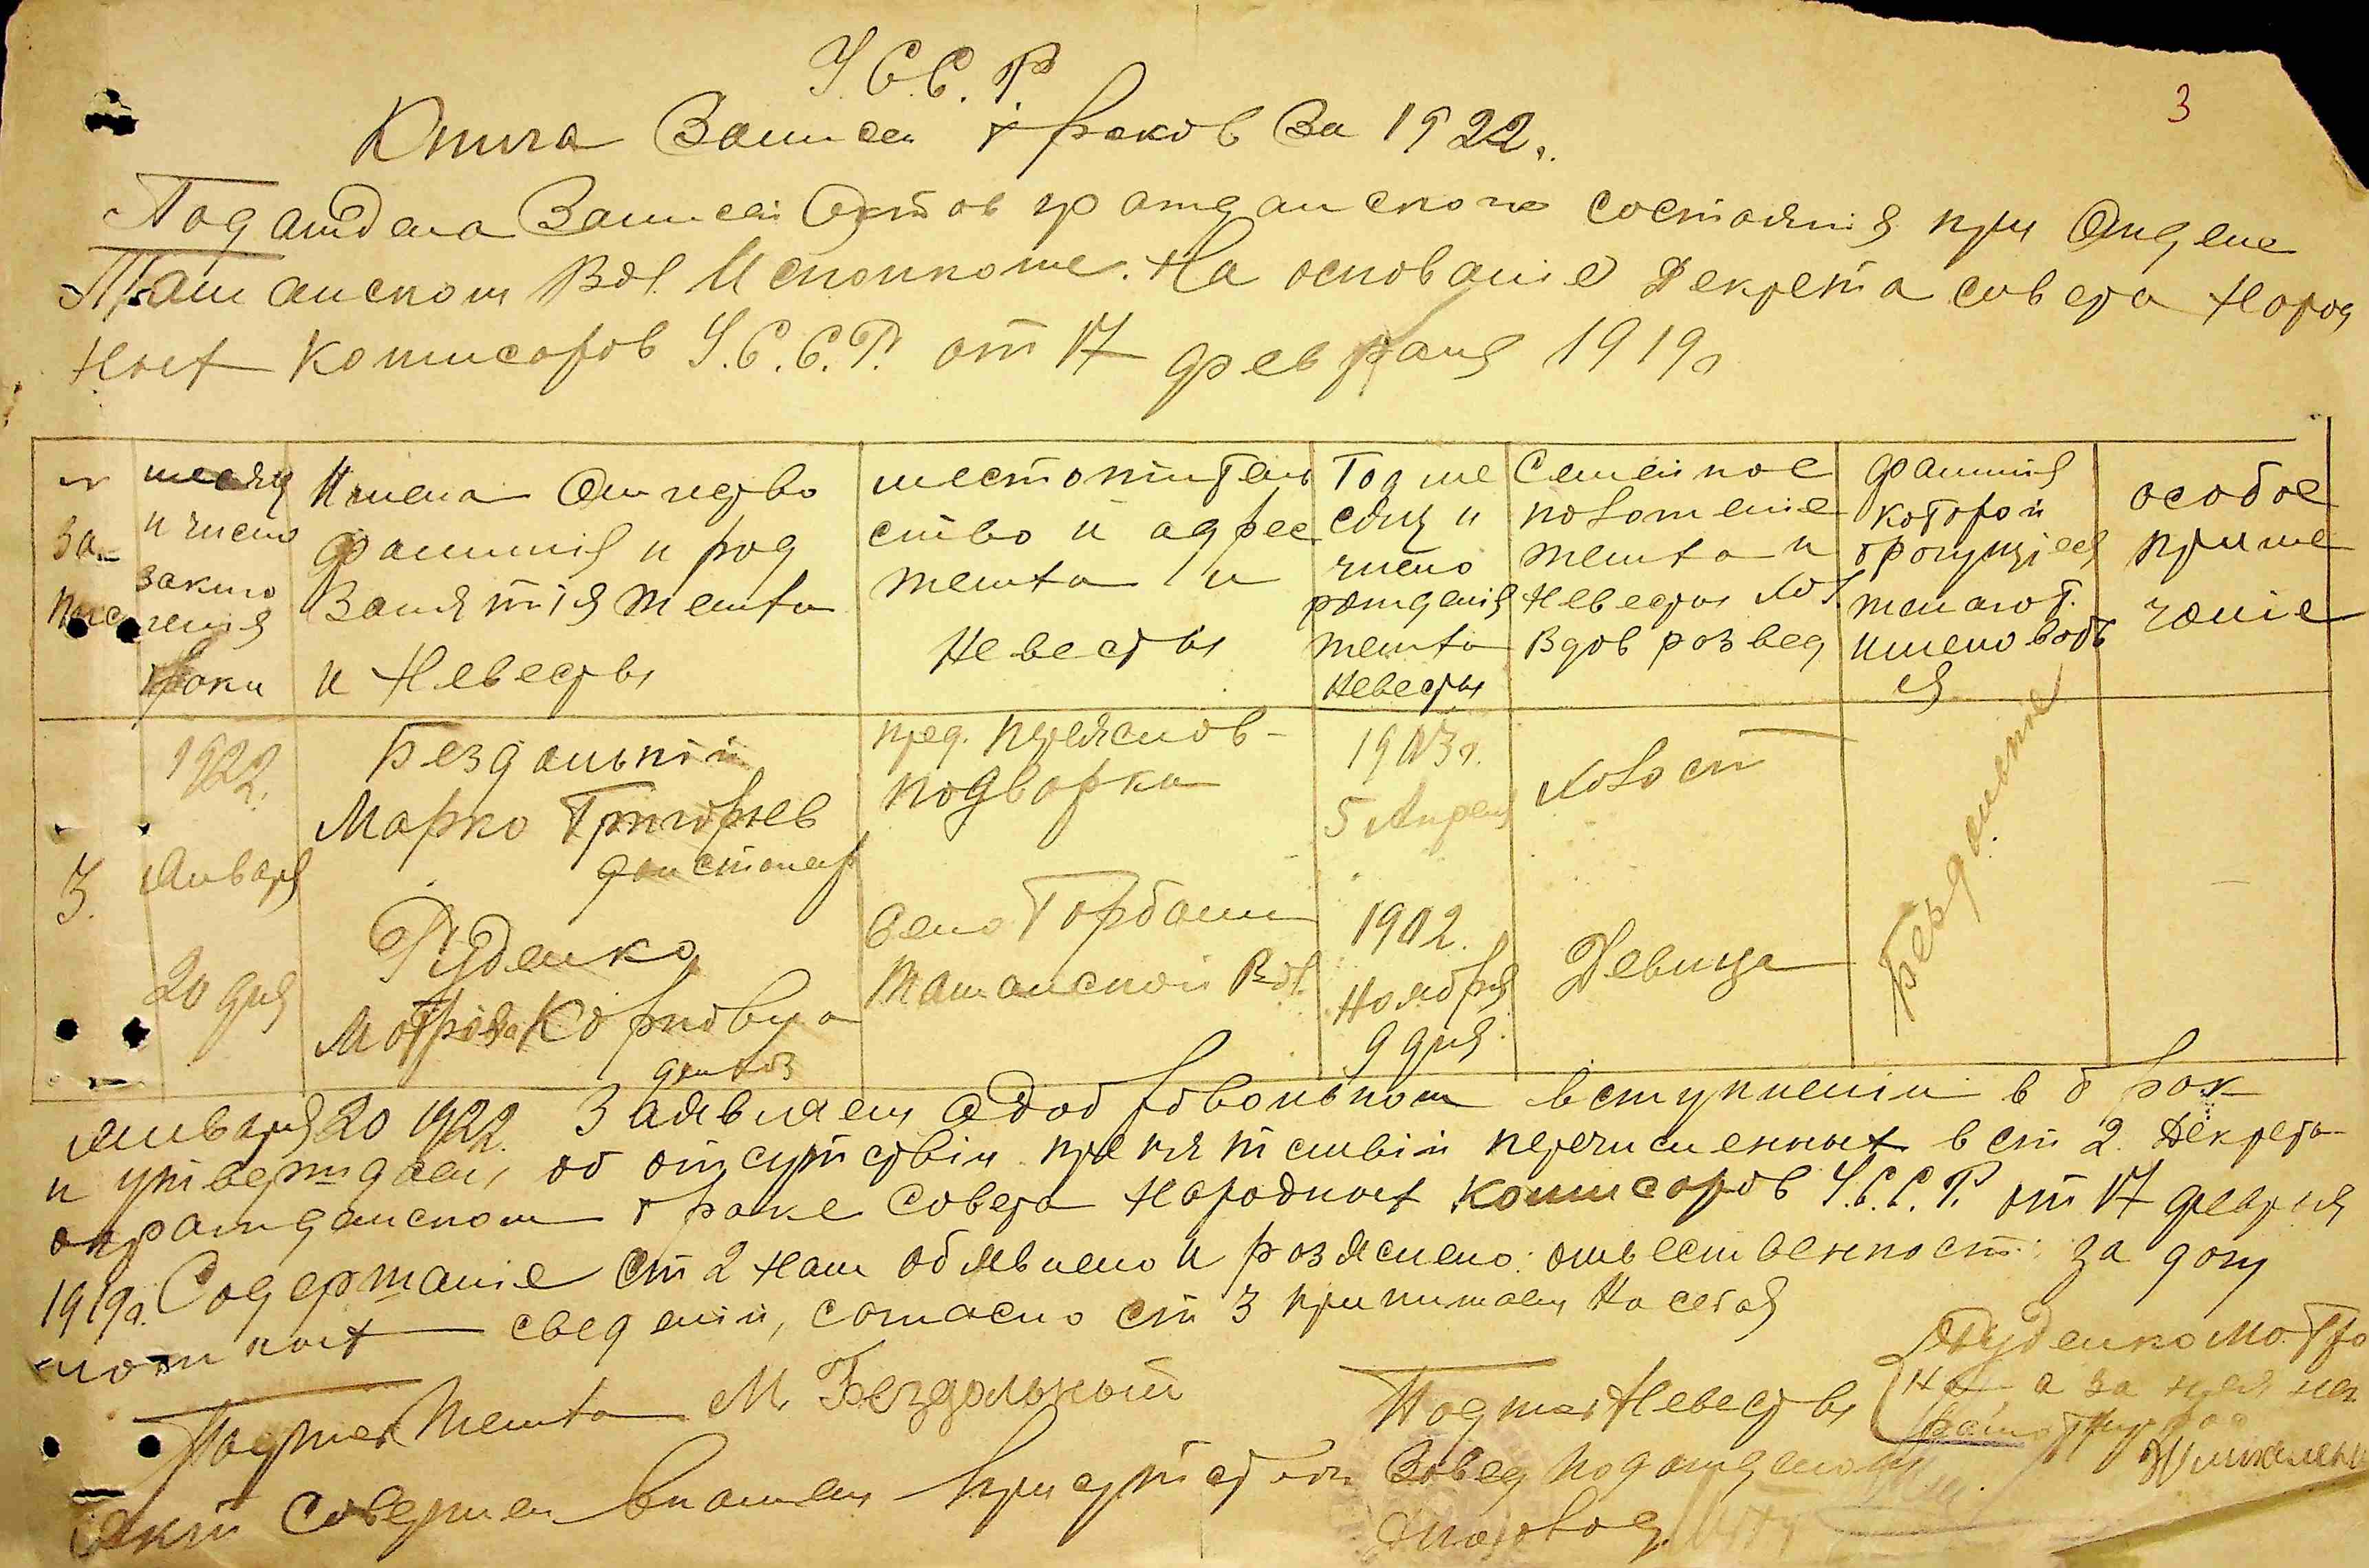 3
У.С.С.Р.
Книга Записи браков за 1922.
Подотдела Записи Октов гражданского состояния при Отделе
Ташанском Вол. Исполкоме. На основание Декрета совета Народ
ных Комисаров У.С.С.Р. от 17 февраля 1919г
№ записи
месяц и число заключения брака
Имена Отчество
фамилия и род
Занятія жениха
и Невесты
местожитель
ство и адрес
жениха и
Невесты
Год ме
сяц и
число
рождения
жениха
Невесты
Семейное
положение
жениха и
Невесты хол.
Вдов розвед
фамилия
которой
брочущіеся
желают
именоватся
особое
приме
чаніе
3.
1922.
Января
20 дня
Бездольний
Марко Григорьев
Руденко
Мотрона Карповна
пред.
подворка
Село Горбани
Ташанской Вол.
1903г.
5 Апреля
1902.
Ноября
9 дня
холост
Девица
Бездольние
Января 20 1922. Заявляем одобровольном вступлении в брак
и утверждаем, об отсутствіи препятствий перечисленных в ст 2. Декрета
огражданском браке Совета Народных Комисаров У.С.С.Р. от 17 февраля
1919г. Содержаніе ст 2 нам обявлено и розяснено: ответственность за
ложных сведений, согласно ст 3 принимаем на себя
Подпись Жениха М. Бездольный
Подпись Невесты Руденко Мотро
на а за нея не
Акт Совершен в нашем присутствии Завед подотделом
Деловод